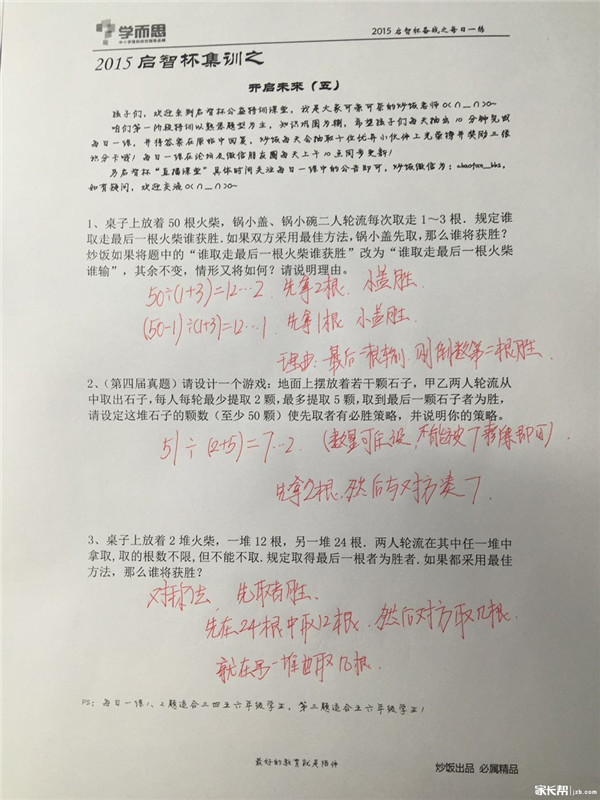 学而思
中小学理科培优领跑品牌
2015 启智杯备战之每日一练
2015 启智杯集训之
开启未来（五）
孩子们，欢迎来到启智杯公益特训课堂，我是大家可亲可亲的炒饭老师 O(∩_∩)O~
咱们第一阶段特训以熟悉题型为主，知识巩固为辅，希望孩子们每天抽出 10 分钟完成
每日一练，并将答案在原帖中回复，炒饭每天会抽取十位优秀小伙伴上光荣榜并奖励三张
积分卡哦！每日一练在论坛及微信朋友圈每天上午 10 点同步更新！
另启智杯“直播课堂”具体时间关注每日一练中的公告即可，炒饭微信为：chaofan_bbs，
如有疑问，欢迎交流 O(∩_∩)O~
1、桌子上放着 50 根火柴，锅小盖、锅小碗二人轮流每次取走 1～3 根．规定谁
取走最后一根火柴谁获胜.如果双方采用最佳方法，锅小盖先取，那么谁将获胜？
炒饭如果将题中的“谁取走最后一根火柴谁获胜”改为“谁取走最后一根火柴
谁输”，其余不变，情形又将如何？请说明理由。
50÷(1+3)=12…2 先拿2根. 小盖胜
(50-1)÷(1+3)=12…1 先拿1根 小盖胜.
理由：最后一根输，则倒数第二根胜.
2、（第四届真题）请设计一个游戏：地面上摆放着若干颗石子，甲乙两人轮流从
中取出石子，每人每轮最少提取 2 颗，最多提取 5 颗，取到最后一颗石子者为胜，
请设定这堆石子的颗数（至少 50 颗）使先取者有必胜策略，并说明你的策略。
51÷(2+5)=7…2 (数量可任设，不能被7整除即可).
先拿2根.然后与对方凑7.
3、桌子上放着 2 堆火柴，一堆 12 根，另一堆 24 根．两人轮流在其中任一堆中
拿取，取的根数不限，但不能不取．规定取得最后一根者为胜者．如果都采用最佳
方法，那么谁将获胜？
对称法 先取者胜.
先在24根中取12根. 然后对方取几根.
就在另一堆也取几根.
PS：每日一练1、2题适合三四五六年级学生，第三题适合五六年级学生！
最好的教育就是陪伴
炒饭出品 必属精品
家长帮 jzb.com